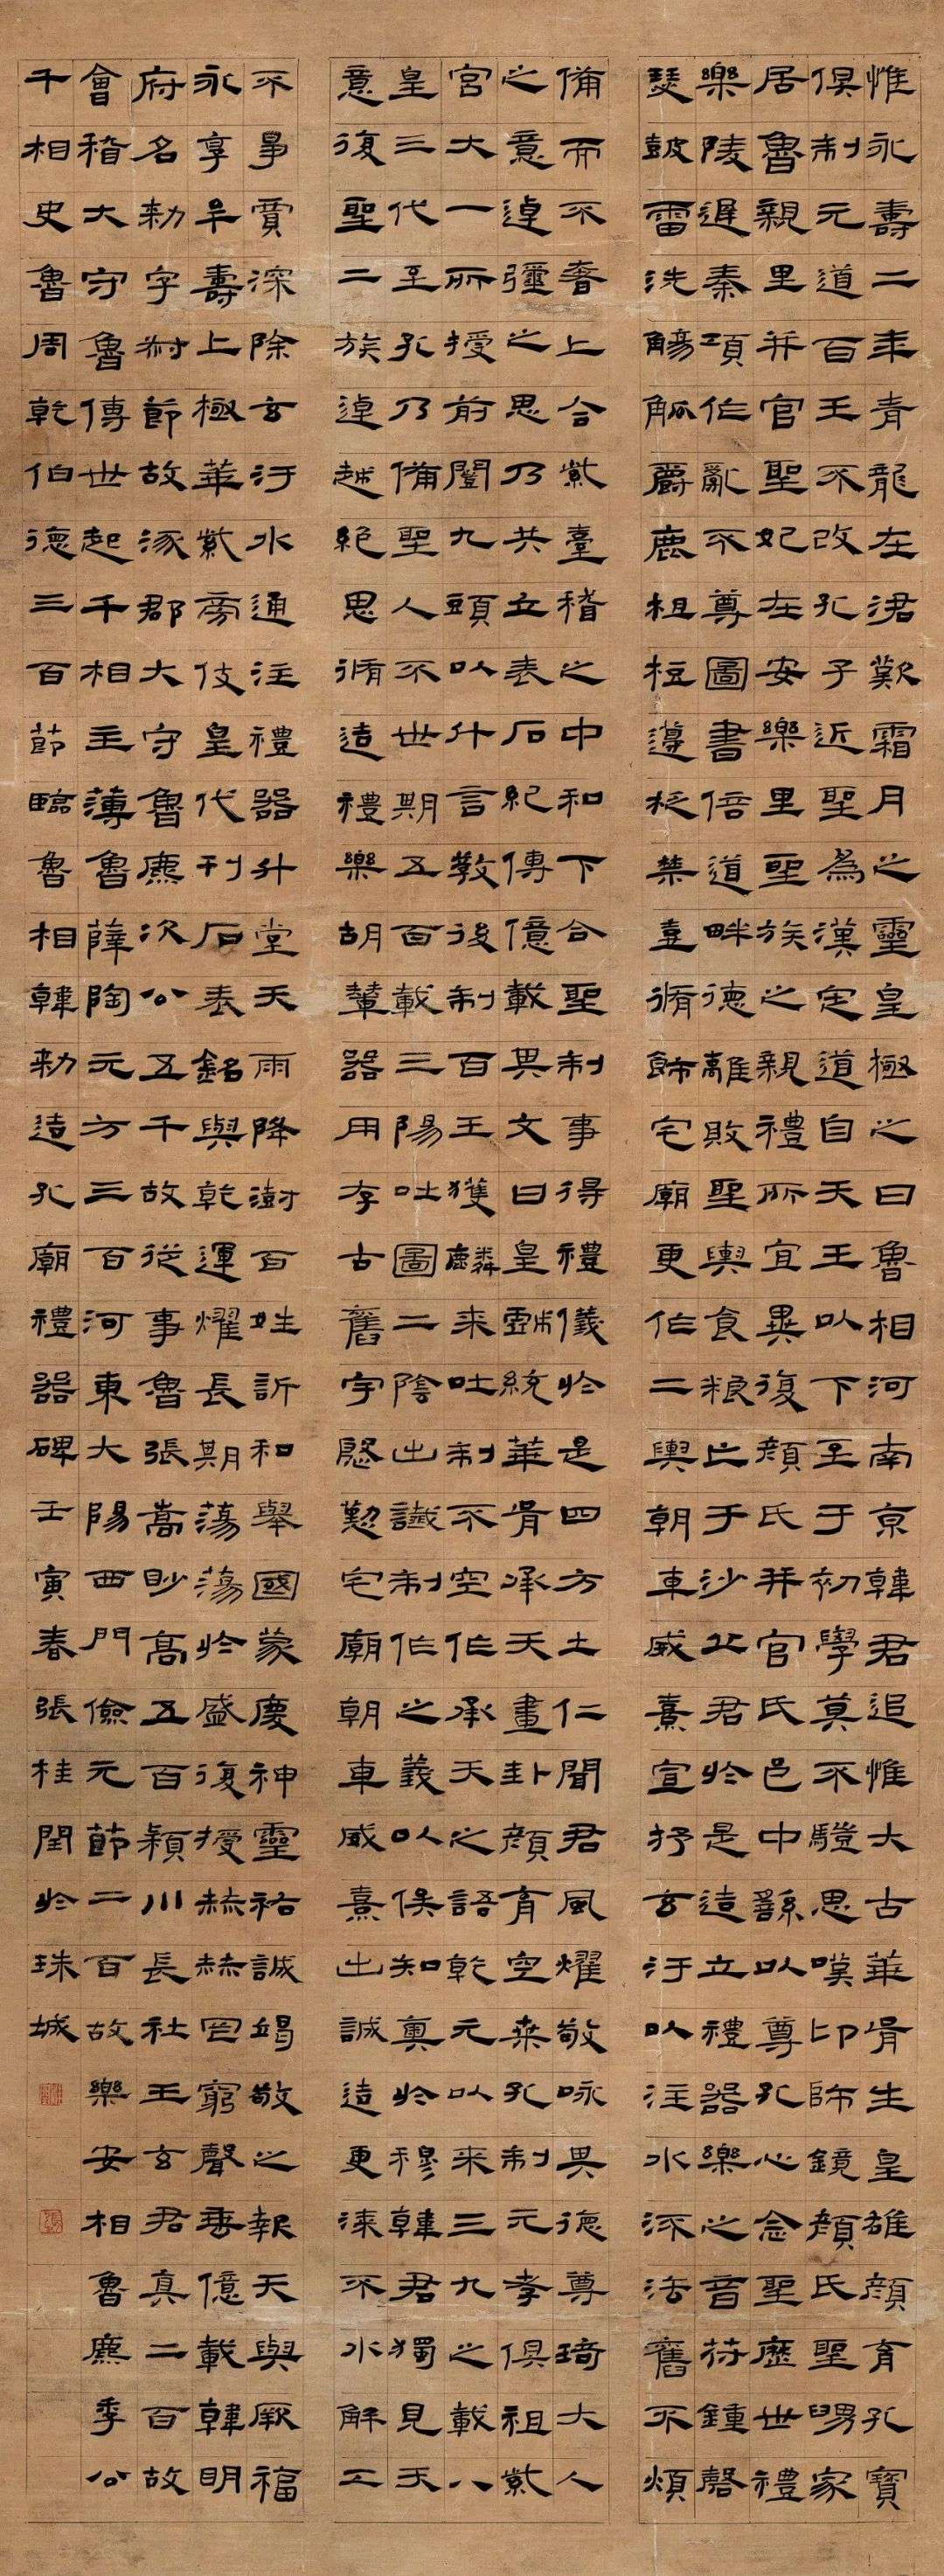 惟永壽二年青龍在涒歎霜月之靈皇極之日魯相河南京韓君追惟大古華胥生皇雄顏育孔寶
俱制元道百王不改孔子近聖為漢定道自天王以下至于初學莫不驥思嘆卬師鏡顏氏聖舅家
居魯親里并官聖妃在安樂里聖族之親禮所宜異復顏氏并官氏邑中繇以尊孔心念聖歷世禮
樂陵遲秦項作亂不尊圖書倍道畔德離敗聖輿食粮亡于沙丘君於是造立禮器樂之音符鍾磬
瑟鼓雷洗觴觚爵鹿柤梪籩柉禁壺脩飾宅廟更作二輿朝車威熹宣抒玄汙以注水流法舊不煩
備而不奢上合紫臺稽之中和下合聖制事得禮儀於是四方土仁聞君風燿敬咏其德尊琦大人
之意逴彌之思乃共立表石紀傳億載其文曰皇戲統華胥承天畫卦顏育空桑孔制元孝俱祖紫
宮大一所授前闓九頭以什言教後制百王獲麟来吐制不空作承天之語乾元以来三九之載八
皇三代至孔乃備聖人不世期五百載三陽吐圖二陰出讖制作之義以俟知奧於穆韓君獨見天
意復聖二族逴越絕思脩造禮樂胡輦器用存古舊宇慇懃宅廟朝車威熹出誠造更漆不水解工
不爭賈深除玄汙水通注禮器升堂天雨降澍百姓訢和舉國蒙慶神靈祐誠竭敬之報天與厥福
永享牟壽上極華紫旁伎皇代刊石表銘與乾運燿長期蕩蕩於盛復授赫赫罔窮聲垂億載韓明
府名勑字叔節故涿郡大守魯麃次公五千故從事魯張嵩眇高五百潁川長社王玄君真二百故
會稽大守魯傅世起千相主薄魯薛陶元方三百河東大陽西門儉元節二百故樂安相魯麃季公
千相史魯周乾伯德三百節臨魯相韓勑造孔廟禮器碑壬寅春張桂閏於珠城